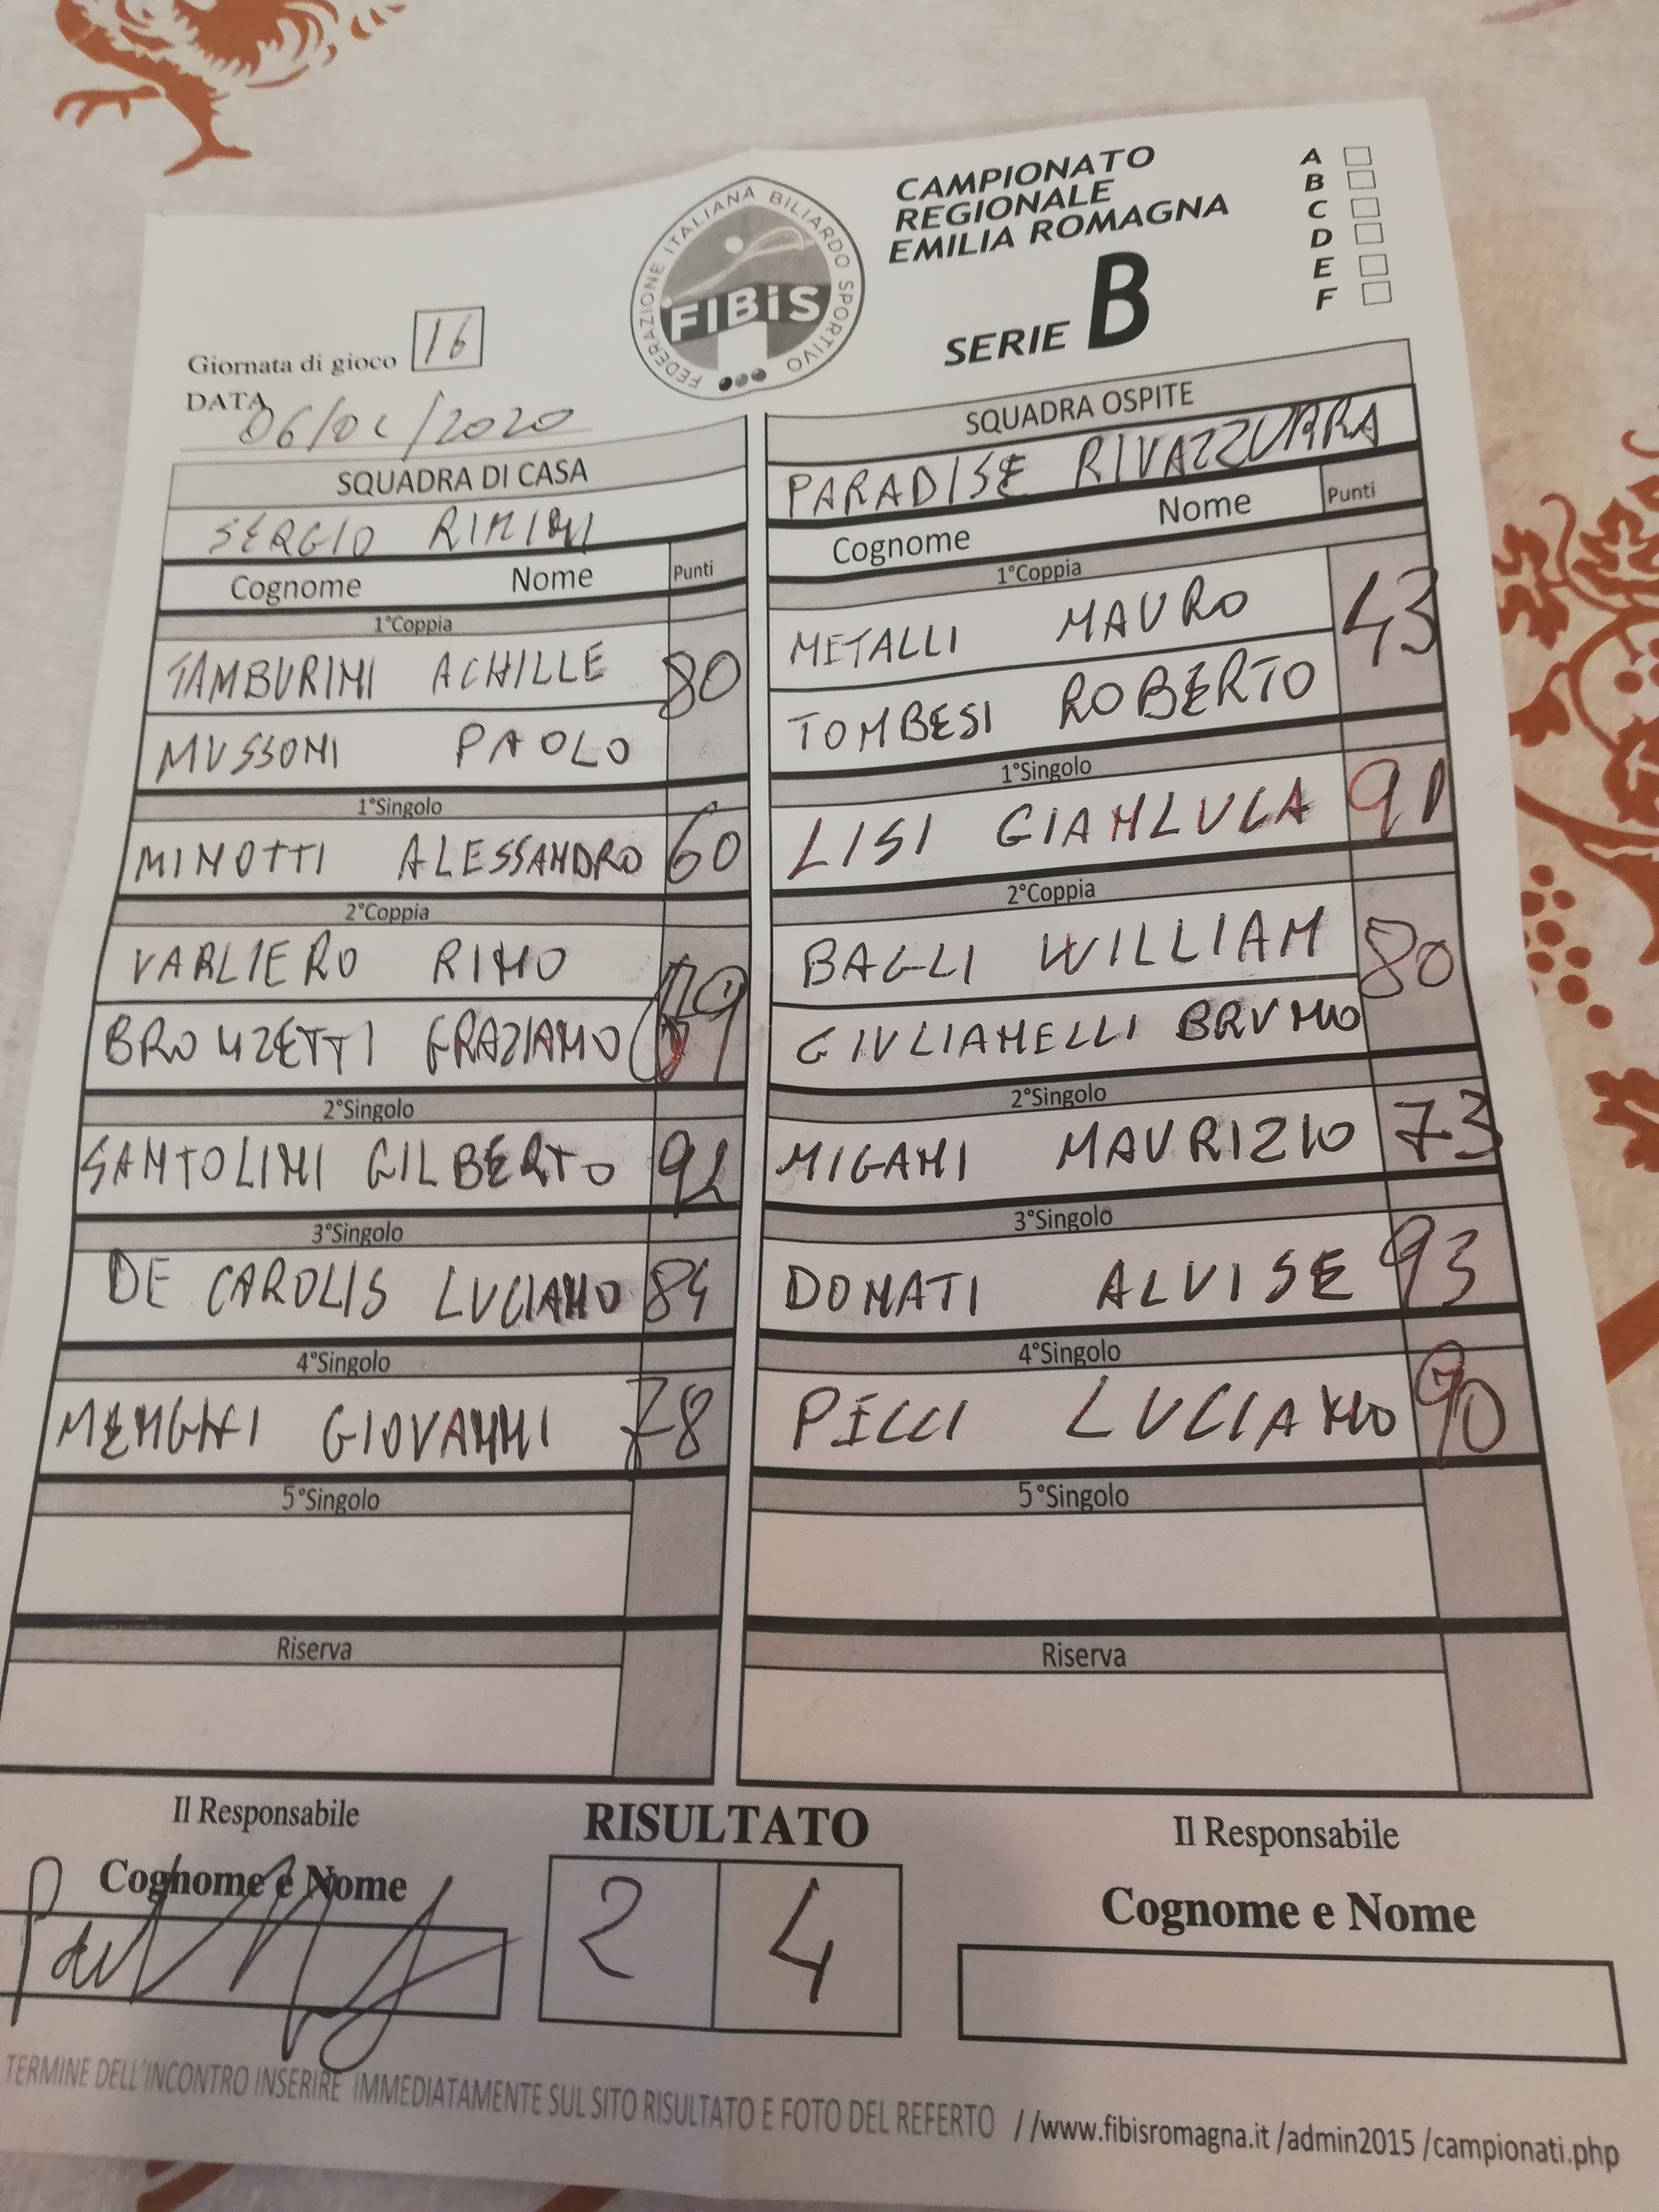 FEDERAZIONE ITALIANA BILIARDO SPORTIVO
FIBiS
CAMPIONATO
REGIONALE
EMILIA ROMAGNA
SERIE B
A
B
C
D
E
F
Giornata di gioco 16
DATA
2020
SQUADRA DI CASA
SERGIO RIMINI
Cognome Nome Punti
1°Coppia
TAMBURINI ACHILLE 80
MUSSONI PAOLO
1°Singolo
MINOTTI ALESSANDRO 60
2°Coppia
VARLIERO RINO
BRONZETTI GRAZIANO
2°Singolo
SANTOLINI GILBERTO
3°Singolo
DE CAROLIS LUCIANO 84
4°Singolo
MENGHI GIOVANNI 78
5°Singolo
Riserva
SQUADRA OSPITE
PARADISE RIVAZZURRA
Cognome Nome Punti
1°Coppia
METALLI MAURO 43
TOMBESI ROBERTO
1°Singolo
LISI GIANLUCA 91
2°Coppia
BAGLI WILLIAM 80
GIULIANELLI BRUNO
2°Singolo
MIGANI MAURIZIO 73
3°Singolo
DONATI ALVISE 93
4°Singolo
PECCI LUCIANO 90
5°Singolo
Riserva
Il Responsabile
Cognome e Nome
RISULTATO
2 4
Il Responsabile
Cognome e Nome
TERMINE DELL'INCONTRO INSERIRE IMMEDIATAMENTE SUL SITO RISULTATO E FOTO DEL REFERTO //www.fibisromagna.it/admin2015/campionati.php